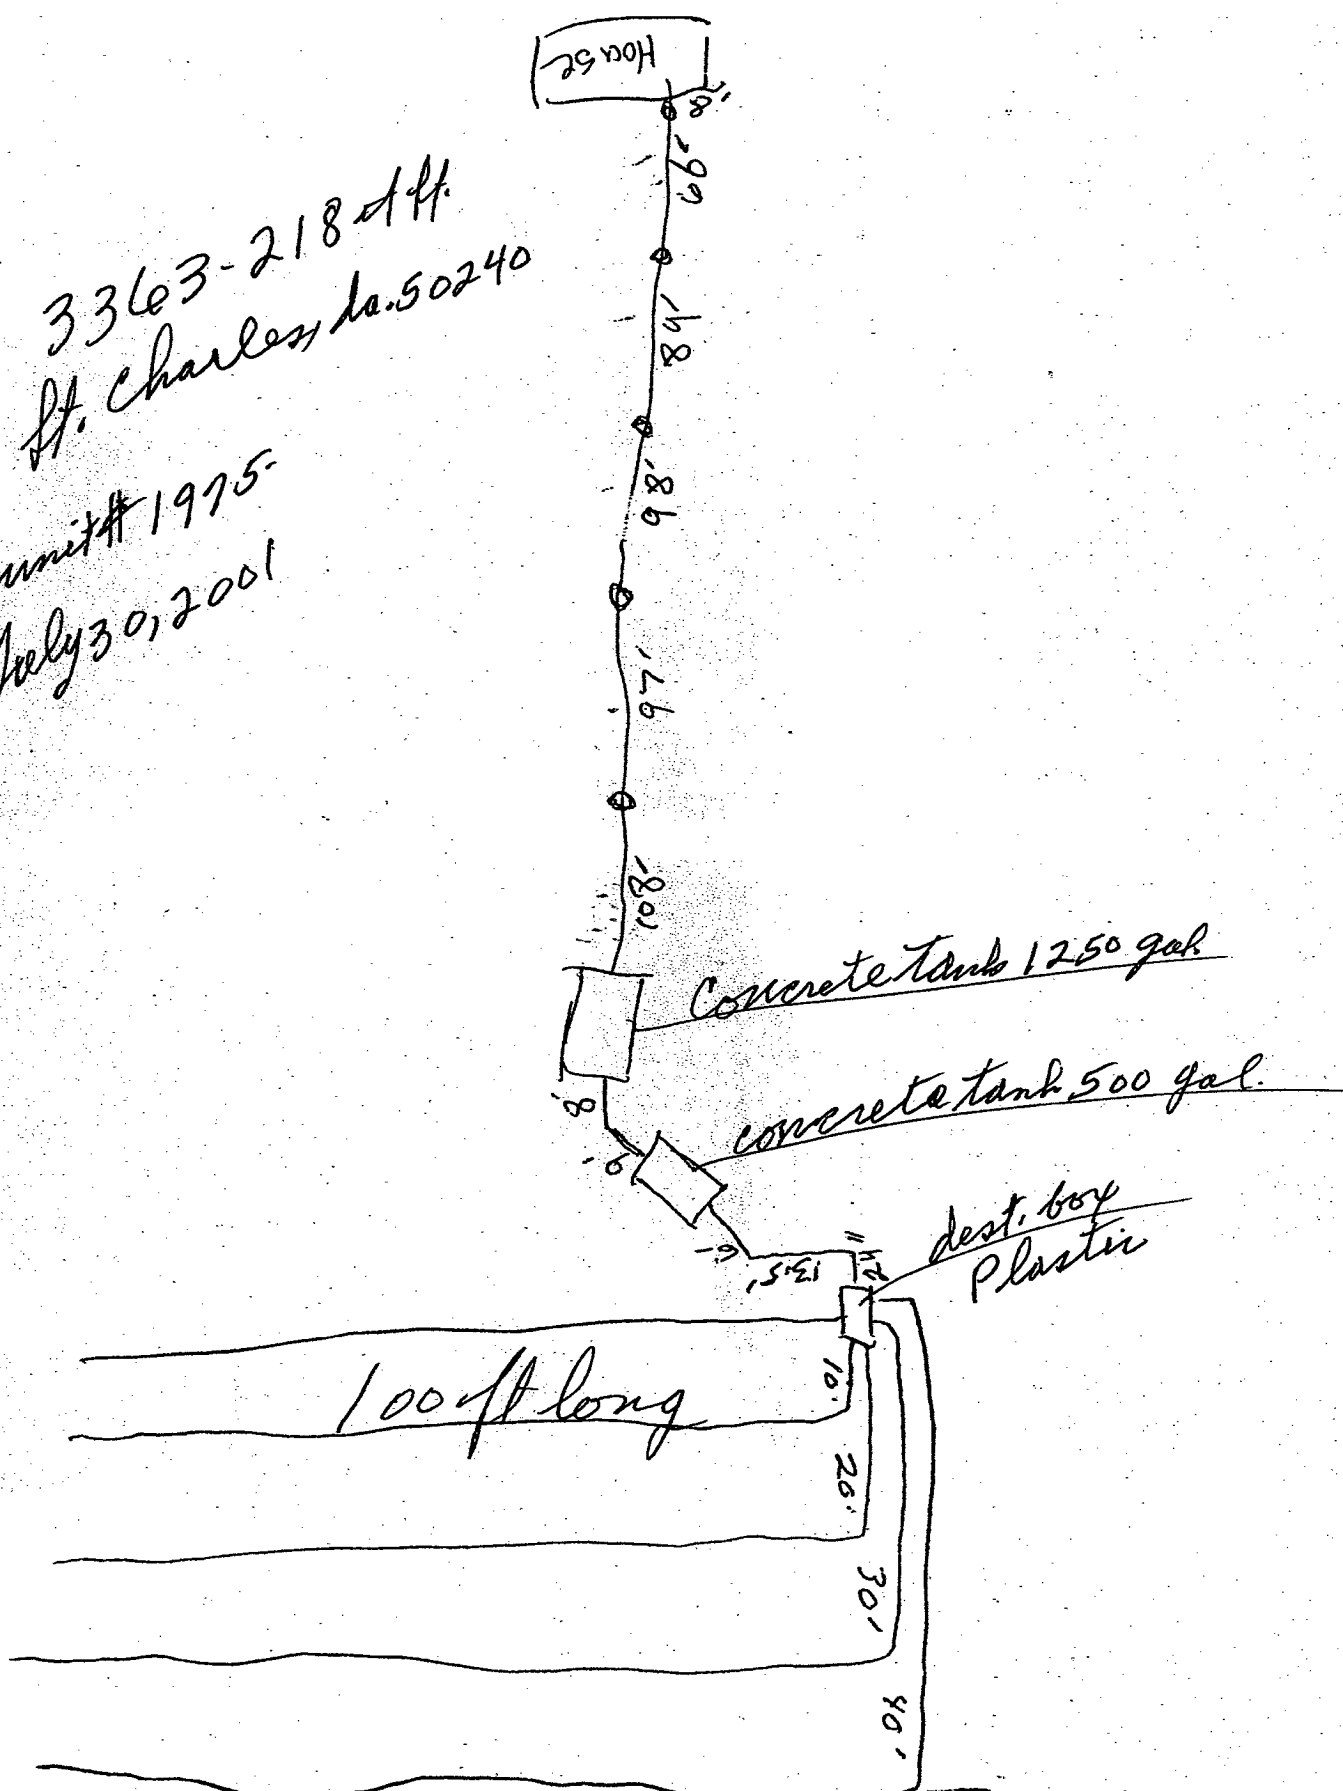 House
8'
99'
84'
98'
97'
108'
3363-218th St.
St. Charles, Ia. 50240
unit# 1975
July 30, 2001
Concrete tank 1250 gal.
8'
concrete tank 500 gal.
dest. box
Plastic
13.5'
24"
100 ft long
10'
20'
30'
40'